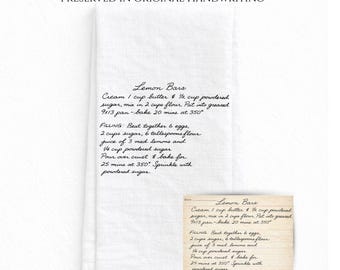 PRESERVED IN ORIGINAL HANDWRITING
Lemon Bars
Cream 1 cup butter & ½ cup powdered
sugar, mix in 2 cups flour. Put into greased
9x13 pan - bake 20 mins at 350°
FILLING: Beat together 6 eggs,
2 cups sugar, 6 tablespoons flour
juice of 3 med lemons and
¼ cup powdered sugar
Pour over crust & bake for
25 mins at 350° Sprinkle with
powdered sugar.
Lemon Bars
Cream 1 cup butter & ½ cup powdered
sugar, mix in 2 cups flour. Put into greased
9x13 pan - bake 20 mins at 350°
FILLING: Beat together 6 eggs,
2 cups sugar, 6 tablespoons flour
juice of 3 med lemons and
¼ cup powdered sugar
Pour over crust & bake for
25 mins at 350° Sprinkle with
powdered sugar.